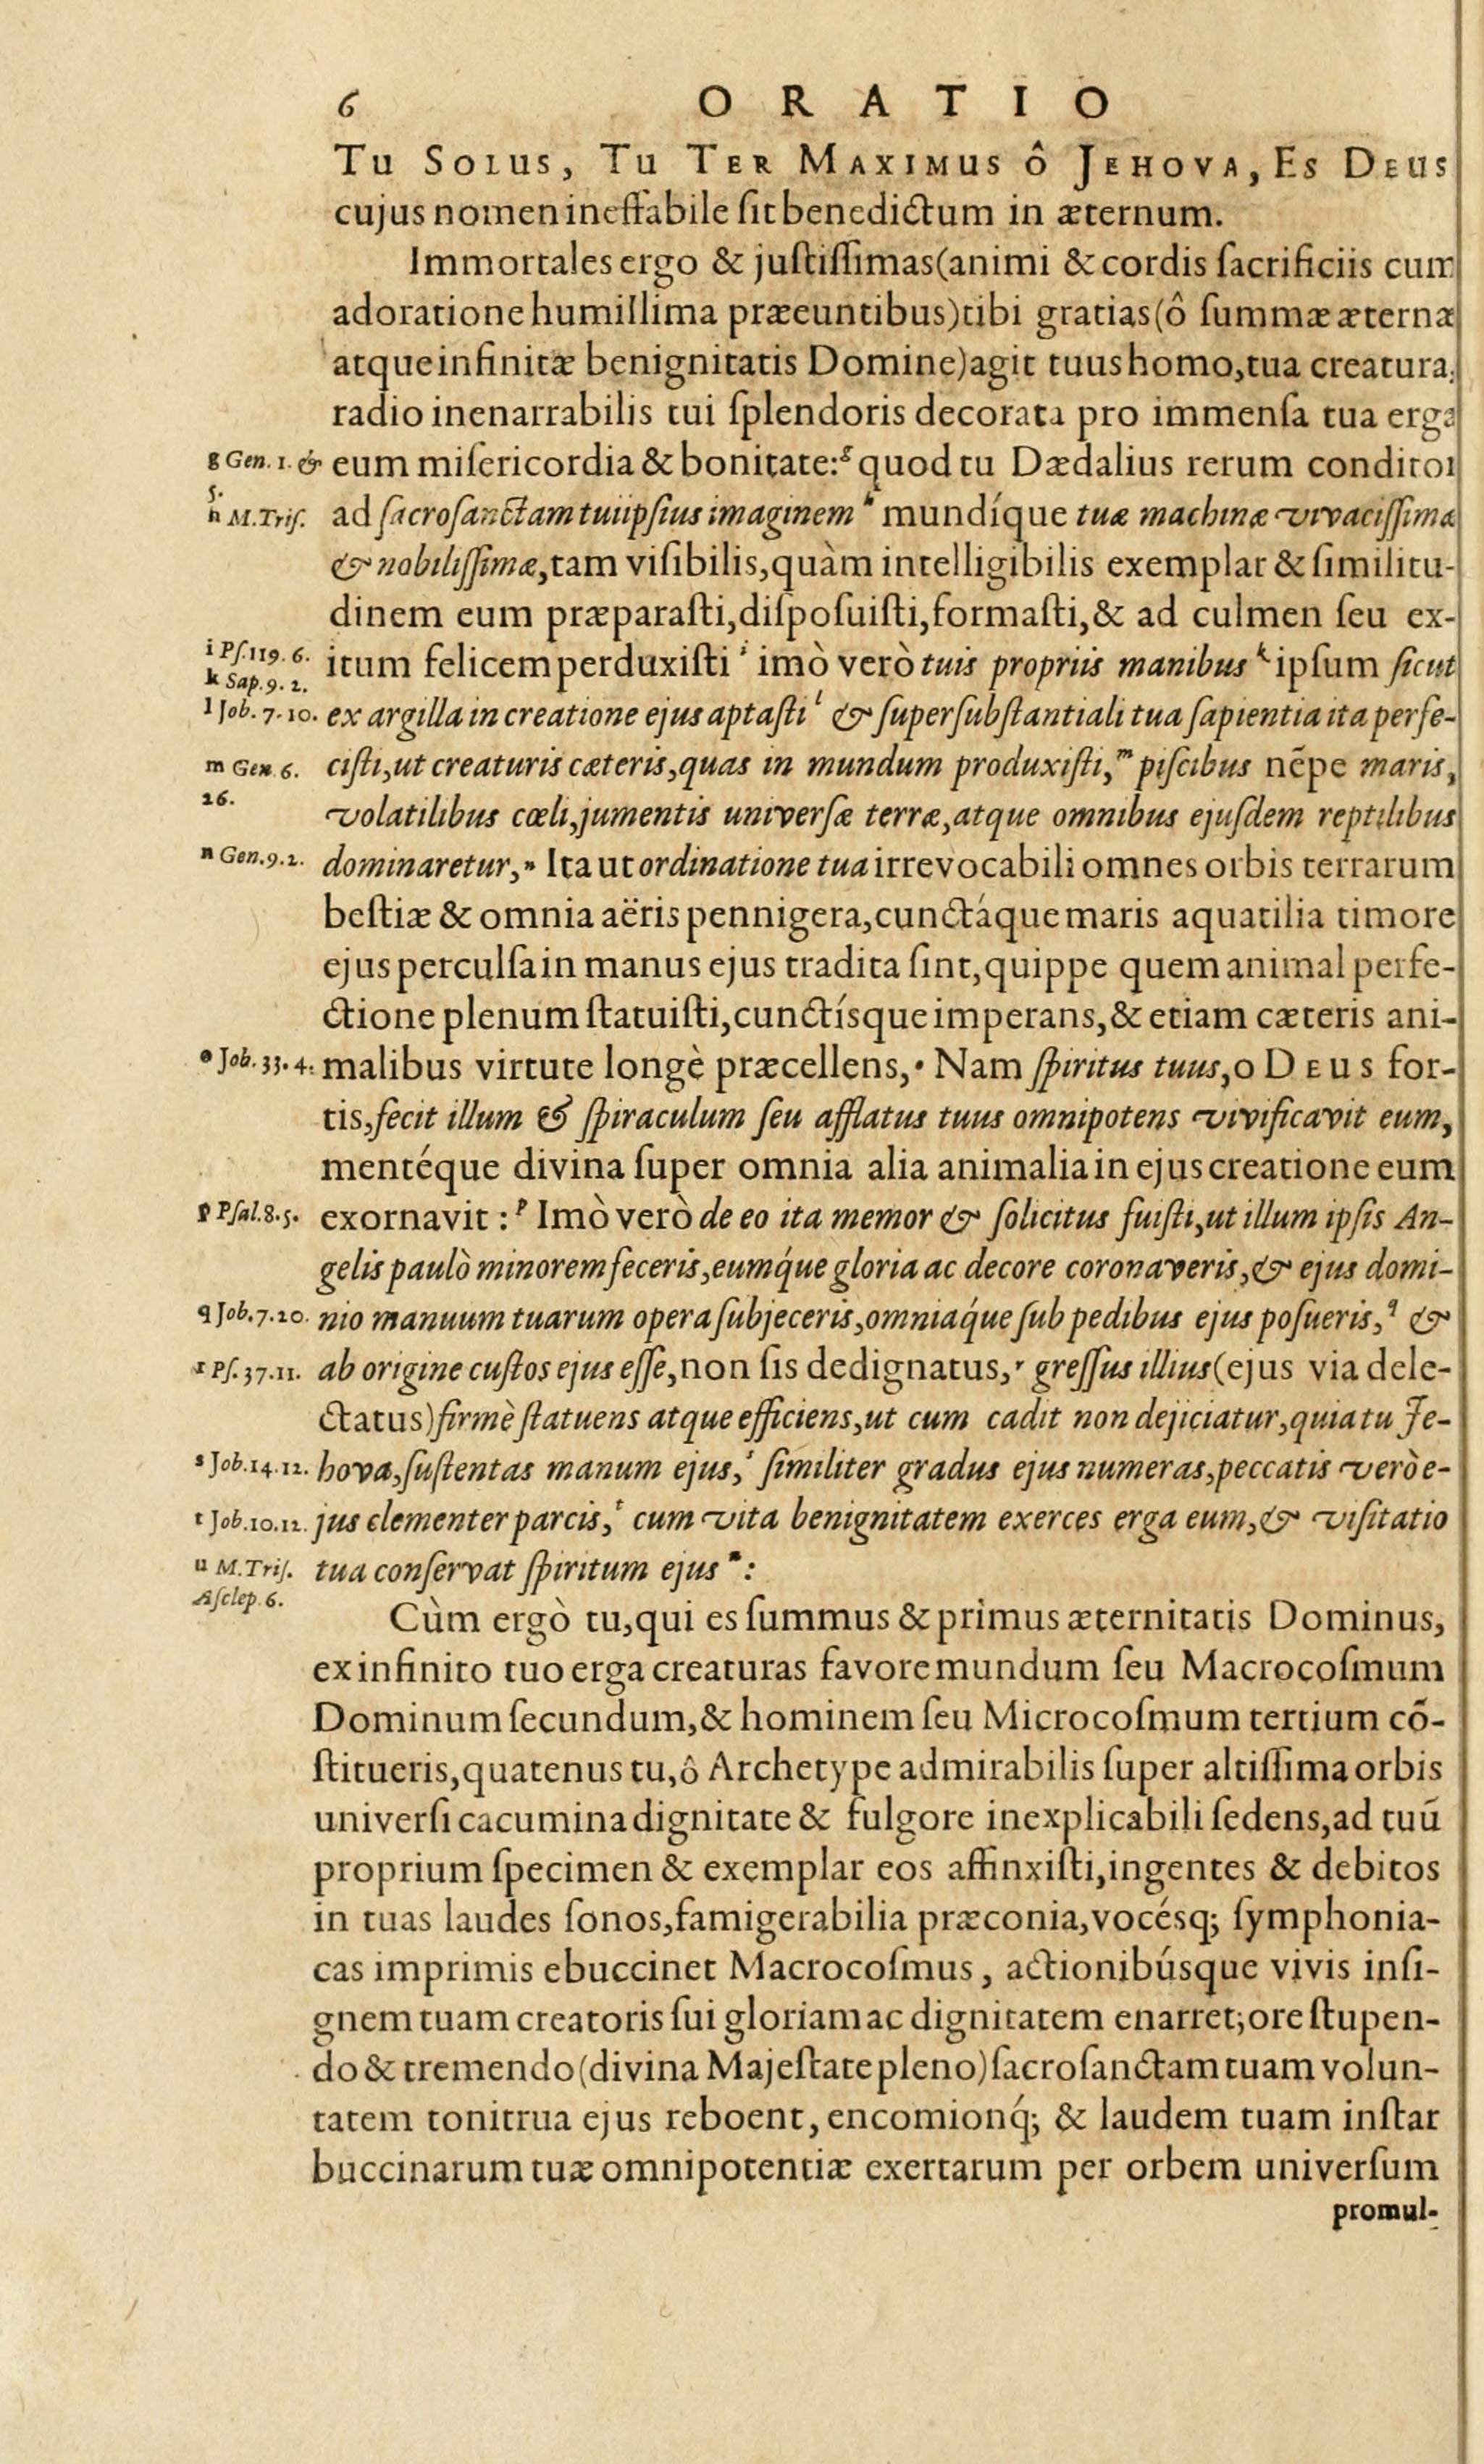 6 ORATIO
Tu Solus, Tu Ter Maximus ô Jehova, Es Deus
cujus nomen ineffabile ſit benedictum in æternum.
Immortales ergo & juſtiſſimas (animi & cordis ſacrificiis cum
adoratione humillima præeuntibus) tibi gratias (ô ſummæ æternæ
atque infinitæ benignitatis Domine) agit tuus homo, tua creatura,
radio inenarrabilis tui ſplendoris decorata pro immenſa tua erga
g Gen. 1. &
5.
eum miſericordia & bonitate: g quod tu Dædalius rerum conditor
h M.Triſ.
ad ſacroſanctam tuiipſius imaginem h mundíque tuæ machinæ vivaciſſimæ
& nobiliſſimæ, tam viſibilis, quàm intelligibilis exemplar & ſimilitu-
dinem eum præparaſti, diſpoſuiſti, formaſti, & ad culmen ſeu ex-
i Pſ.119.6.
k Sap.9.2.
itum felicem perduxiſti i imò verò tuis propriis manibus k ipſum ſicut
l Job. 7.10.
ex argilla in creatione ejus aptaſti l & ſuperſubſtantiali tua ſapientia ita perfe-
m Gen 6.
26.
ciſti, ut creaturis cæteris, quas in mundum produxiſti, m piſcibus nēpe maris,
volatilibus cœli, jumentis univerſæ terræ, atque omnibus ejuſdem reptilibus
n Gen.9.2.
dominaretur, n Ita ut ordinatione tua irrevocabili omnes orbis terrarum
beſtiæ & omnia aëris pennigera, cunctáque maris aquatilia timore
ejus perculſa in manus ejus tradita ſint, quippe quem animal perfe-
ctione plenum ſtatuiſti, cunctíſque imperans, & etiam cæteris ani-
o Job. 33. 4.
malibus virtute longè præcellens, o Nam ſpiritus tuus, o Deus for-
tis, fecit illum & ſpiraculum ſeu afflatus tuus omnipotens vivificavit eum,
mentéque divina ſuper omnia alia animalia in ejus creatione eum
p Pſal.8.5.
exornavit : p Imò verò de eo ita memor & ſolicitus fuiſti, ut illum ipſis An-
gelis paulò minorem feceris, eumq́ue gloria ac decore coronaveris, & ejus domi-
q Job.7.20.
nio manuum tuarum opera ſubjeceris, omniaq́ue ſub pedibus ejus poſueris, q &
r Pſ.37.11.
ab origine cuſtos ejus eſſe, non ſis dedignatus, r greſſus illius (ejus via dele-
ctatus) firmè ſtatuens atque efficiens, ut cum cadit non dejiciatur, quia tu Je-
s Job.14.12.
hova, ſuſtentas manum ejus, s ſimiliter gradus ejus numeras, peccatis verò e-
t Job.10.12.
jus clementer parcis, t cum vita benignitatem exerces erga eum, & viſitatio
u M.Triſ.
Aſclep.6.
tua conſervat ſpiritum ejus u:
Cùm ergò tu, qui es ſummus & primus æternitatis Dominus,
ex infinito tuo erga creaturas favore mundum ſeu Macrocoſmum
Dominum ſecundum, & hominem ſeu Microcoſmum tertium cō-
ſtitueris, quatenus tu, ô Archetype admirabilis ſuper altiſſima orbis
univerſi cacumina dignitate & fulgore inexplicabili ſedens, ad tuū
proprium ſpecimen & exemplar eos affinxiſti, ingentes & debitos
in tuas laudes ſonos, famigerabilia præconia, vocéſq; ſymphonia-
cas imprimis ebuccinet Macrocoſmus, actionibúsque vivis inſi-
gnem tuam creatoris ſui gloriam ac dignitatem enarret; ore ſtupen-
do & tremendo (divina Majeſtate pleno) ſacroſanctam tuam volun-
tatem tonitrua ejus reboent, encomionq́; & laudem tuam inſtar
buccinarum tuæ omnipotentiæ exertarum per orbem univerſum
promul-